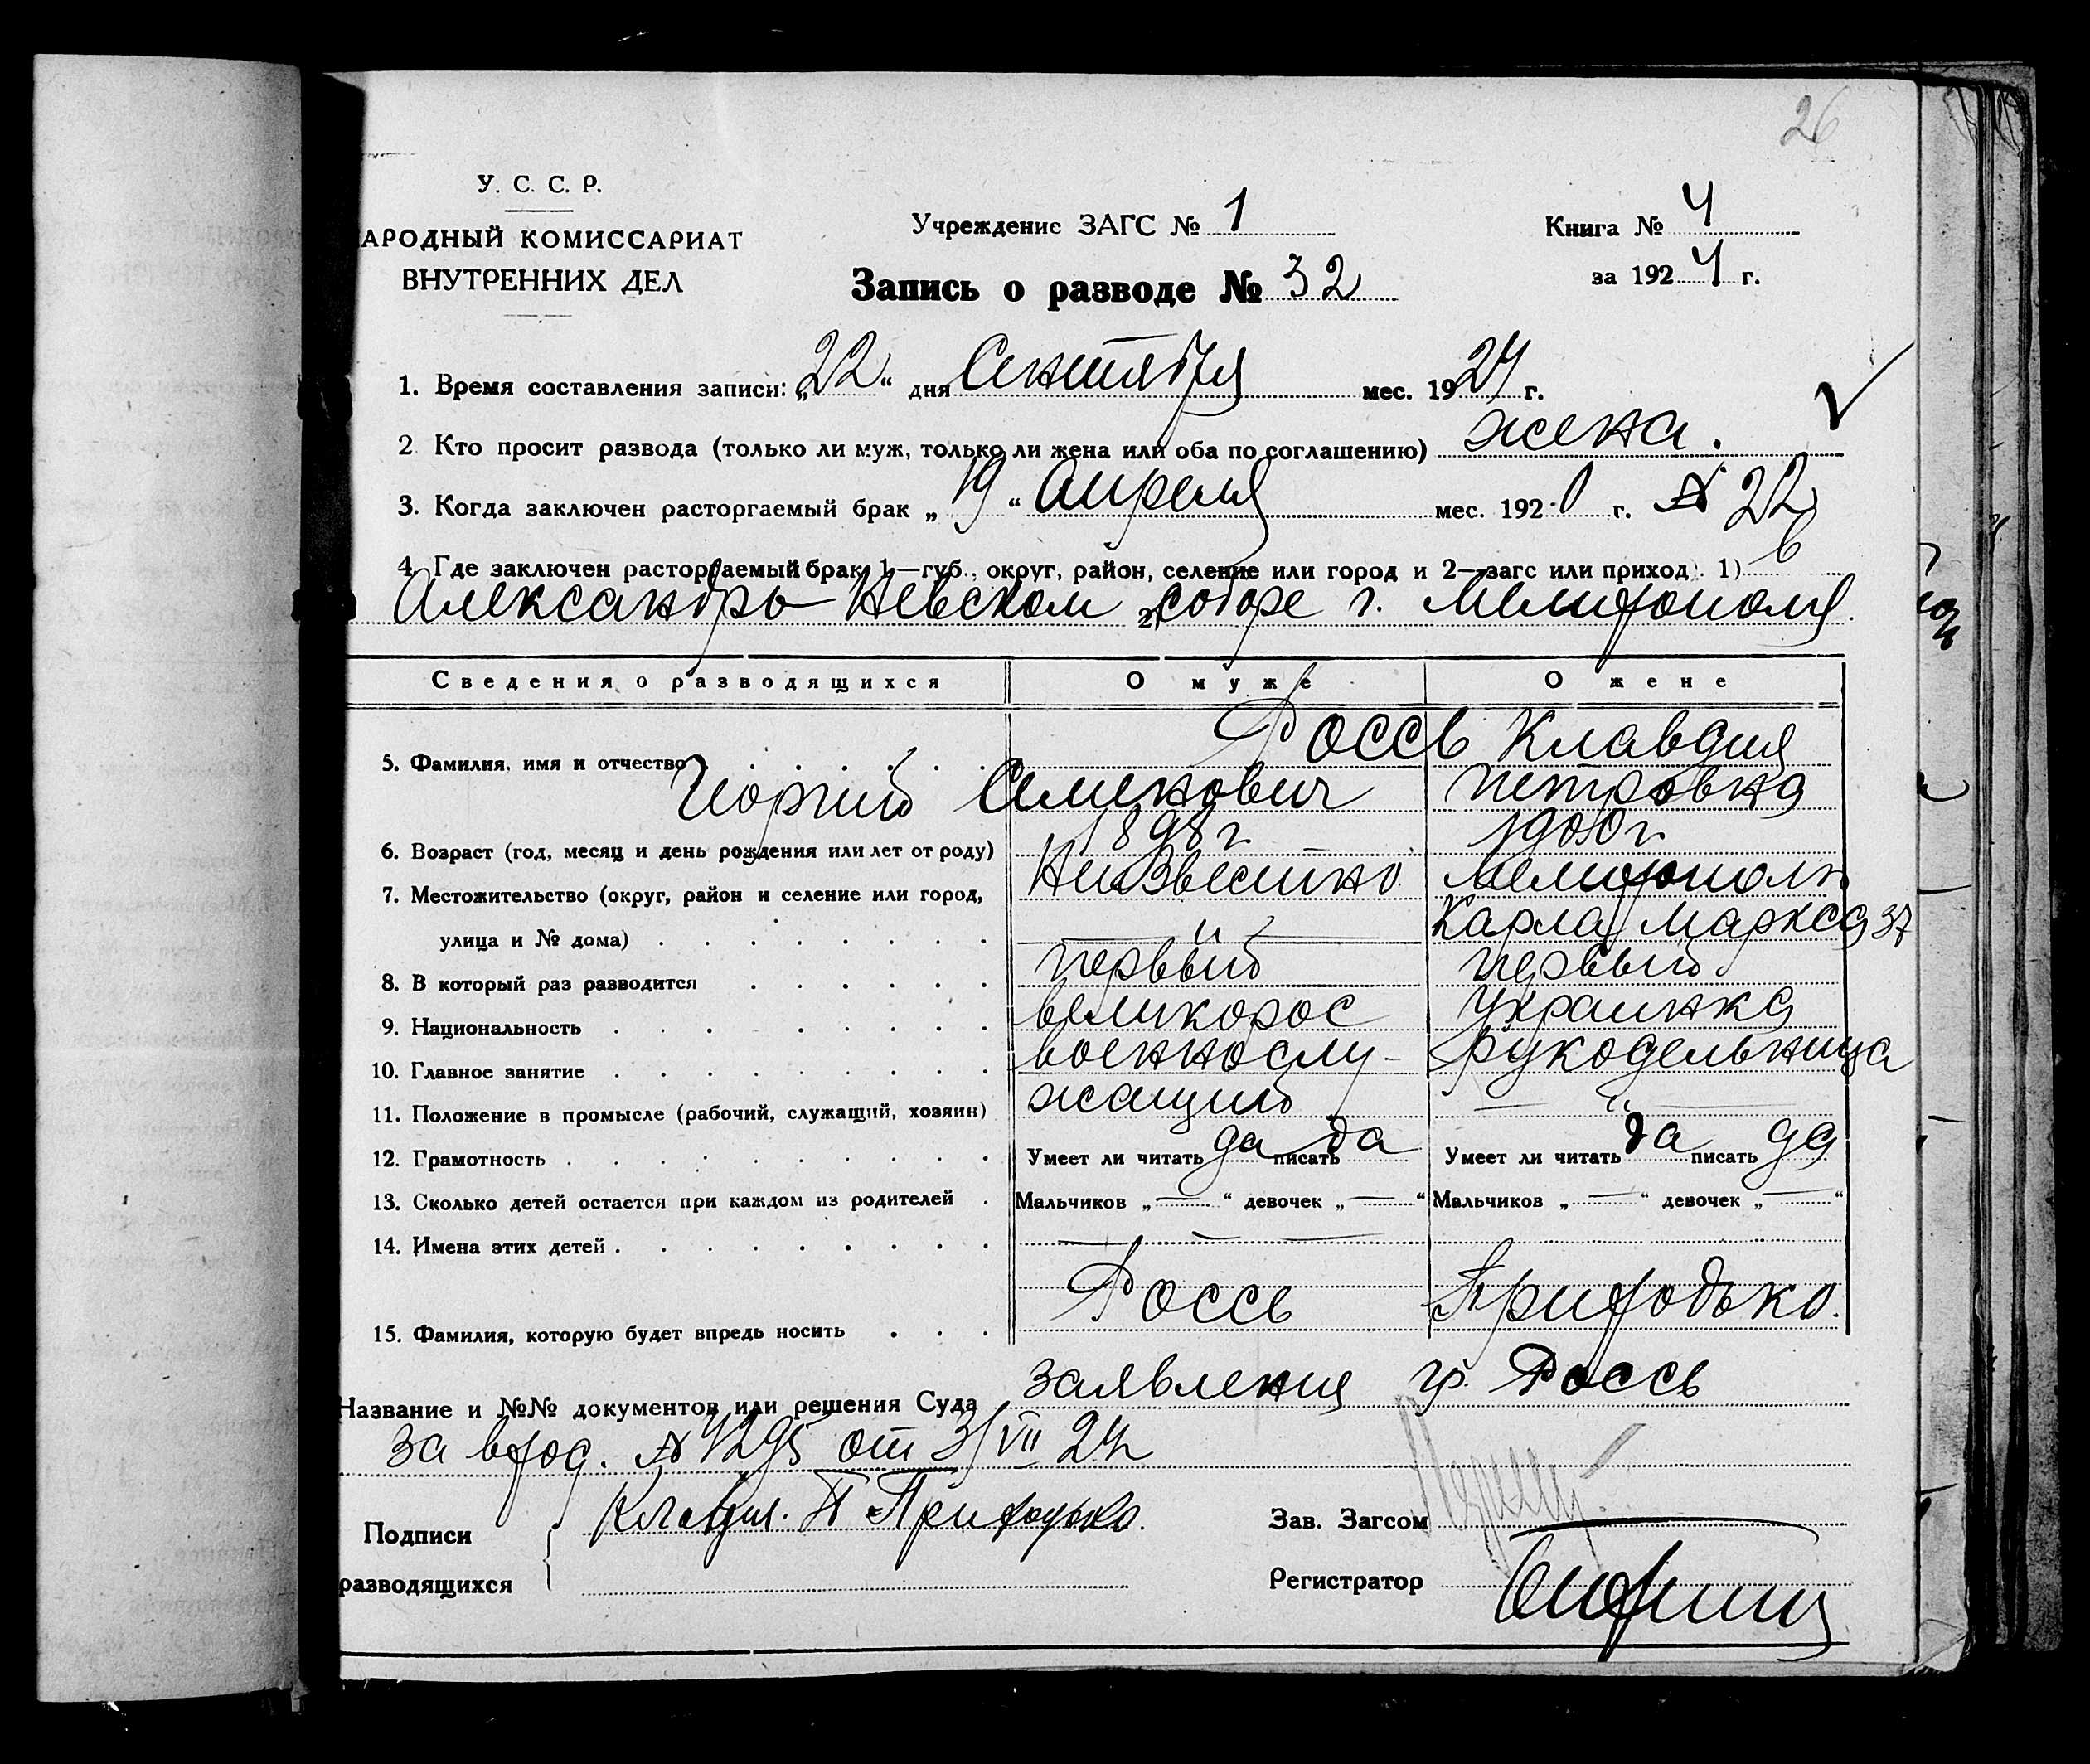 26
У. С. С. Р.
АРОДНЫЙ КОМИССАРИАТ
ВНУТРЕННИХ ДЕЛ
Учреждение ЗАГС № 1
Книга № 4
Запись о разводе № 32
за 1924 г.
1. Время составления записи: „22“ дня Сентября мес. 1924 г.
2 Кто просит развода (только ли муж, только ли жена или оба по соглашению) жена.
3. Когда заключен расторгаемый брак „19“ Апреля мес. 1920 г. № 22
4. Где заключен расторгаемый брак 1—губ., округ, район, селение или город и 2—загс или приход). 1) в
Александро-Невском 2) соборе г. Мелитополя.
Сведения о разводящихся О муже О жене
5. Фамилия, имя и отчество Россь Клавдия
Георгий Семенович Петровна
6. Возраст (год, месяц и день рождения или лет от роду) 1898 г 1900 г.
7. Местожительство (округ, район и селение или город, Неизвестно Мелитополь
улица и № дома) — " — Карла Маркса 37
8. В который раз разводится первый первый
9. Национальность великорос украинка
10. Главное занятие военнослу- рукодельница
11. Положение в промысле (рабочий, служащий, хозяин) жащий — " —
12. Грамотность Умеет ли читать да писать да Умеет ли читать да писать да
13. Сколько детей остается при каждом из родителей Мальчиков „—“ девочек „—“ Мальчиков „—“ девочек „—“
14. Имена этих детей — — —
15. Фамилия, которую будет впредь носить Россь Приходько.
Название и №№ документов или решения Суда заявления гр. Россь
за вход. № 4295 от 3/VII 24 г
Подписи Клавдия. П Приходько.
разводящихся
Зав. Загсом
Регистратор